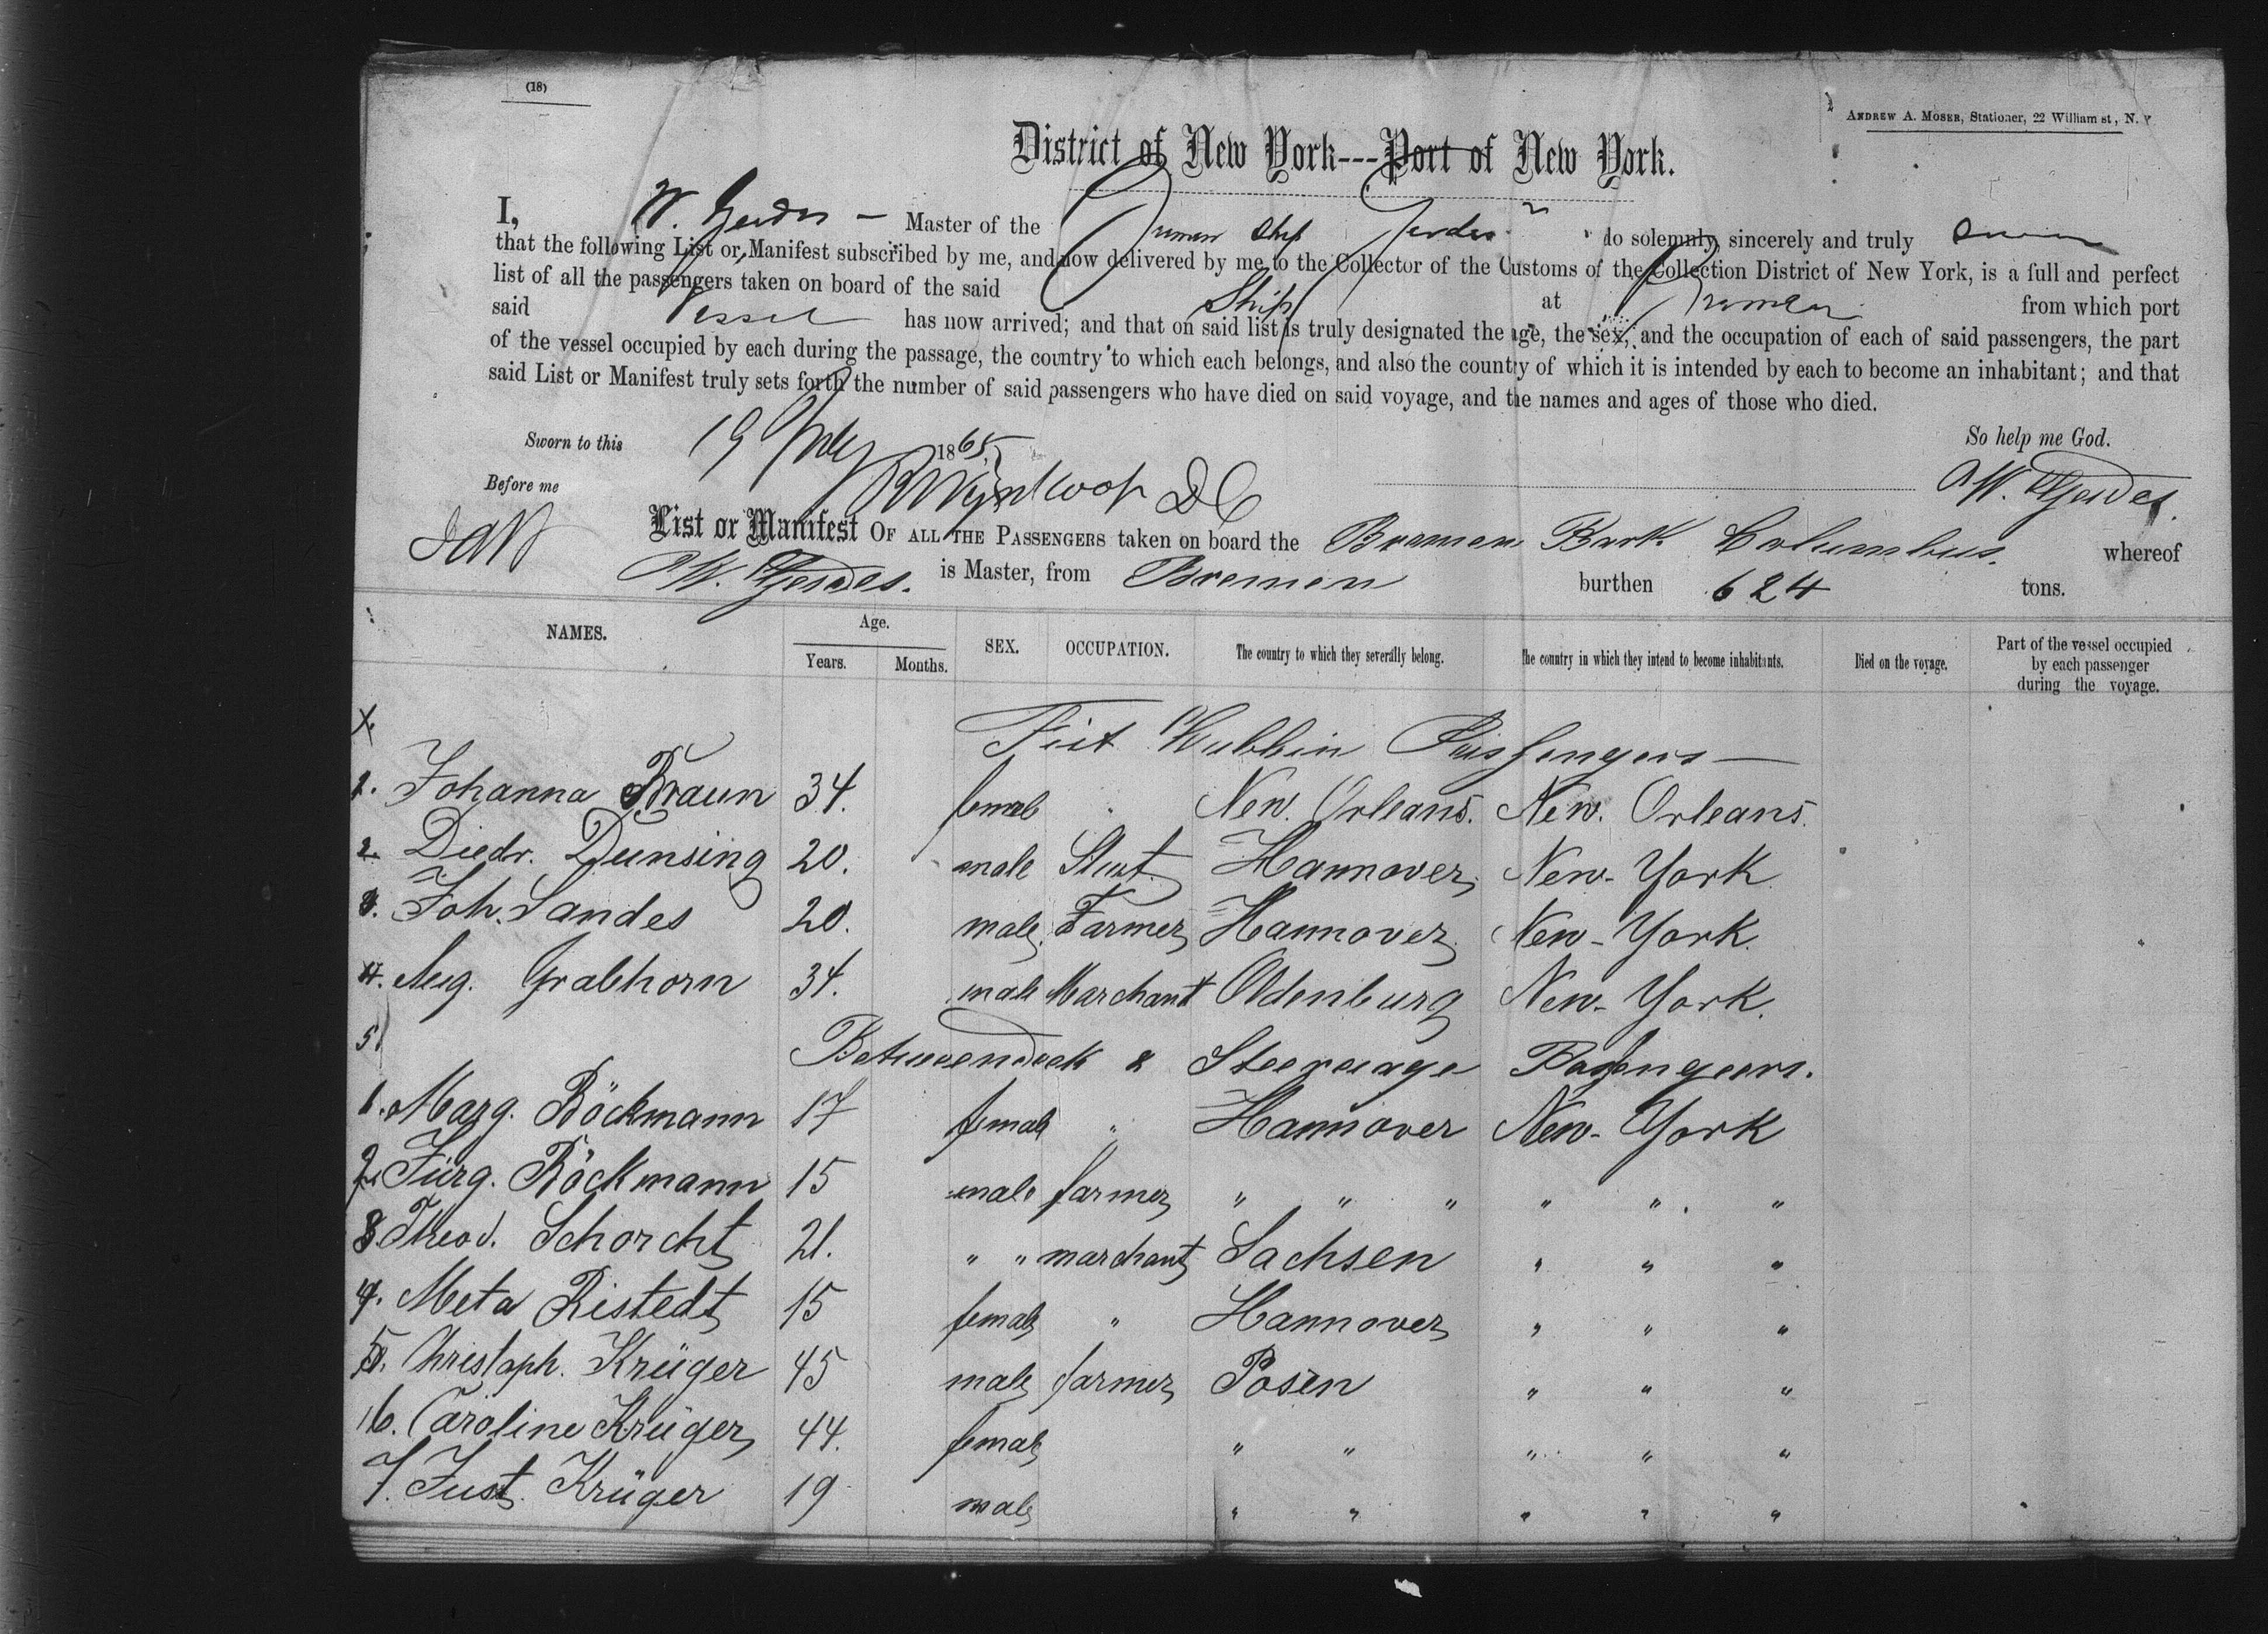 (18)
ANDREW A. MOSER, Stationer, 22 William st, N. Y
District of New York---Port of New York.
I, W. Gerdes — Master of the Bremen Ship Gerdes do solemnly, sincerely and truly swear
that the following List or Manifest subscribed by me, and now delivered by me to the Collector of the Customs of the Collection District of New York, is a full and perfect
list of all the passengers taken on board of the said Ship at Bremen from which port
said Vessel has now arrived; and that on said list is truly designated the age, the sex, and the occupation of each of said passengers, the part
of the vessel occupied by each during the passage, the country to which each belongs, and also the country of which it is intended by each to become an inhabitant; and that
said List or Manifest truly sets forth the number of said passengers who have died on said voyage, and the names and ages of those who died.
Sworn to this 19 1865. So help me God.
Before me Wynkoop DC W. Gerdes.
List or Manifest OF ALL THE PASSENGERS taken on board the Bremen Bark Columbus. whereof
W. Gerdes. is Master, from Bremen burthen 624 tons.
NAMES. Age. Years. Months. SEX. OCCUPATION. The country to which they severally belong. The country in which they intend to become inhabitants. Died on the voyage. Part of the vessel occupied by each passenger during the voyage.
Passengers —
1. Johanna Braun 34. female " New. Orleans. New. Orleans.
2. Diedr. Dunsing 20. male Hannover, New-York.
3. Joh. Sandes 20. male. Farmer Hannover. New-York.
4. Aug. Grabhorn 34. male Marchant Oldenburg New-York.
5 Betweendeck & Steerage Passengers.
1. Marg. Böckmann 17 female " Hannover New-York
2. Jürg. Böckmann 15 male farmer " " " " " "
3. Theod. Schorcht 21. " " marchant Sachsen " " "
4. Meta Ristedt 15 female " Hannover " " "
5. Christoph. Krüger 45 male farmer Posen " " "
6. Caroline Krüger 44. female " " " " "
7. Just. Krüger 19 male " " " " "